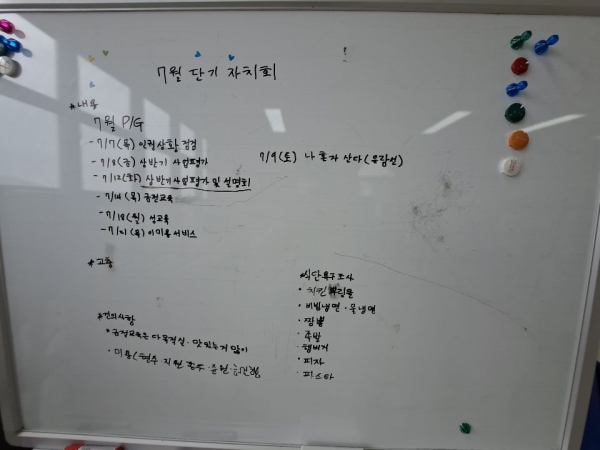 7월 단기 자치회
*내용
7월 P/G
-7/7(목) 인권상황 점검
-7/8(금) 상반기 사업평가
-7/12(화) 상반기사업평가 및 설명회
-7/14(목) 금전교육
-7/18(월) 성교육
-7/21(목) 이미용서비스
7/9(토) 나 혼자 산다(유람선)
*고충
*건의사항
• 금전교육은 다목적실. 맛있는거 많이
• 미용(현주·지원
*식단욕구조사
• 치킨
• 비빔냉면·물냉면
• 짬뽕
• 족발
• 햄버거
• 피자
• 파스타